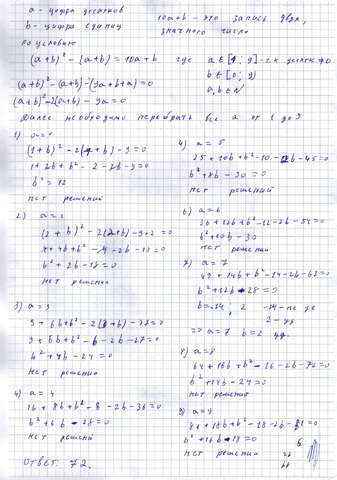 a - цифра десятков
b - цифра единиц
10a+b - это запись двух
значного числа
по условию
(a+b)² - (a+b) = 10a+b где a ∈ [1; 9] - т.к десятк ≠0
b ∈ [0; 9]
a,b ∈ N
(a+b)² - (a+b) - (9a+b+a) = 0
(a+b)² - 2(a+b) - 9a = 0
Далее необходимо перебрать все a от 1 до 9
1) a=1
(1+b)² - 2(1+b) - 9 = 0
1 + 2b + b² - 2 - 2b - 9 = 0
b² = 12
нет решений
2) a = 2
(2+b)² - 2(2+b) - 9·2 = 0
4 + 4b + b² - 4 - 2b - 18 = 0
b² + 2b - 18 = 0
нет решений
3) a = 3
9 + 6b + b² - 2(3+b) - 27 = 0
9 + 6b + b² - 6 - 2b - 27 = 0
b² + 4b - 24 = 0
нет решений
4) a = 4
16 + 8b + b² - 8 - 2b - 36 = 0
b² + 6b - 28 = 0
нет решений
Ответ: 72.
a = 5
25 + 10b + b² - 10 - 2b - 45 = 0
b² + 8b - 30 = 0
нет решений
6) a = 6
36 + 12b + b² - 12 - 2b - 54 = 0
b² + 10b - 30
нет решений
a = 7
49 + 14b + b² - 14 - 2b - 63 = 0
b² + 12b - 28 = 0
b = -14; 2 -14 - не
=> a = 7 b = 2
a = 8
64 + 16b + b² - 16 - 2b - 72 = 0
b² + 14b - 24 = 0
нет решений
a = 9
81 + 18b + b² - 18 - 2b - 81 = 0
b² + 16b - 18 = 0
нет решений